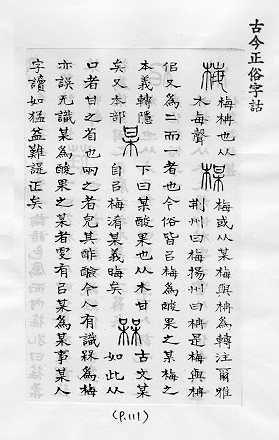 古今正俗字詁
梅枏也从 梅或从某梅與枏為轉注爾雅
木每聲 荆州曰梅揚州曰枏是梅與枏
侣又為二而一者也今俗皆㠯梅為酸果之某梅之
本義轉隱 下曰某酸果也从木甘 古文某
矣又本部 自㠯梅淆某義晦矣 如此从
口者甘之省也兩之者 其酢酸令人有 為梅
亦誤无識某為酸果之某者更有㠯某為某事某人
字讀如猛益難諟正矣
(P.111)